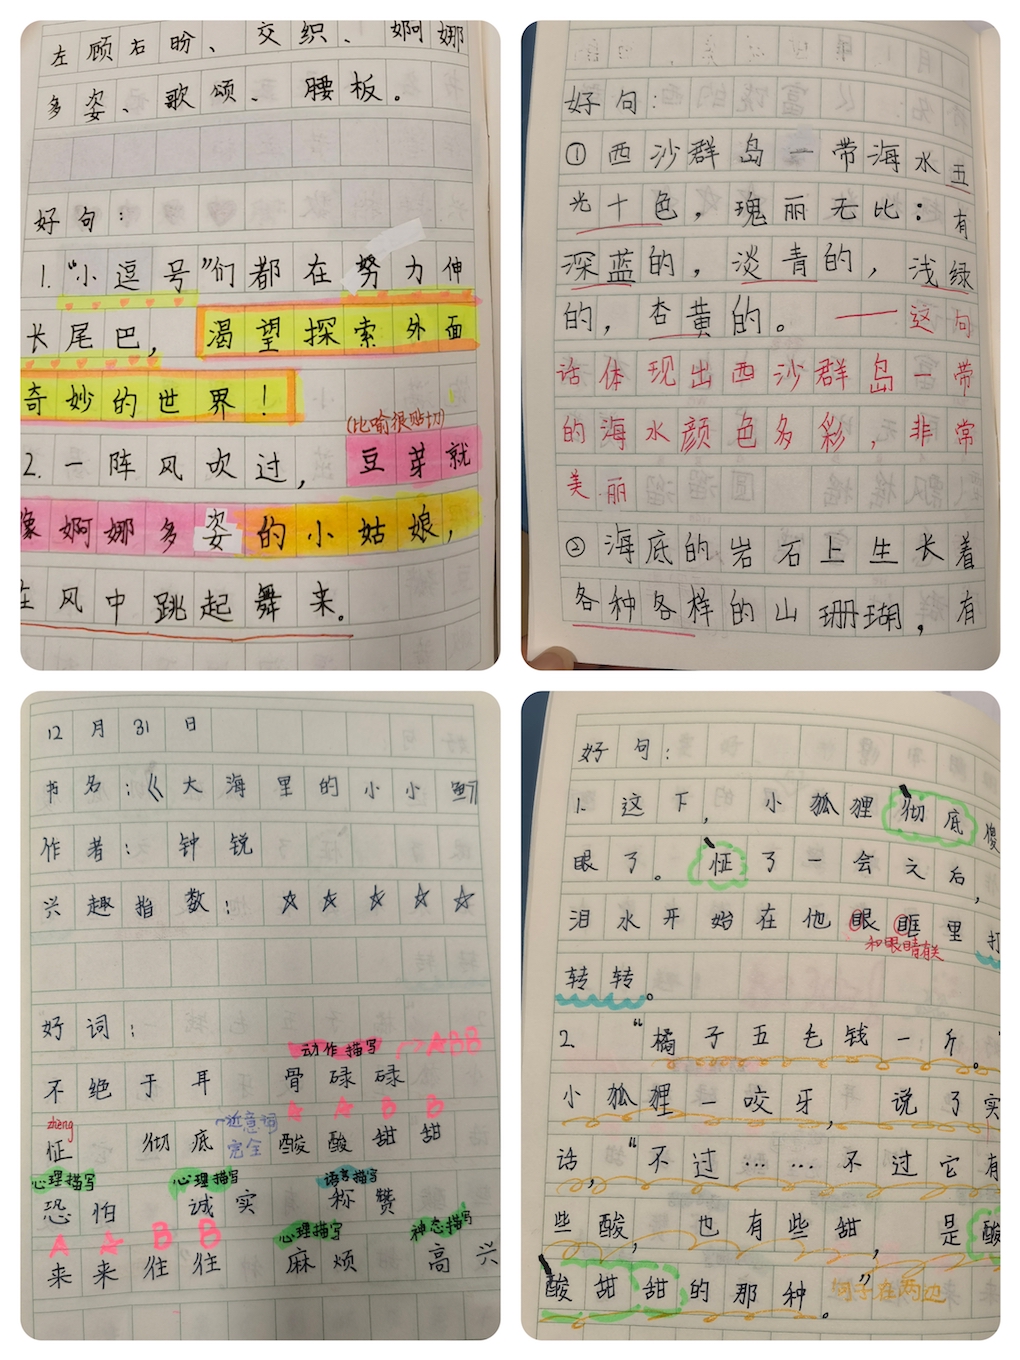 左顾右盼、交织、婀娜
多姿、歌颂、腰板。
好句：
1."小逗号"们都在努力伸
长尾巴，渴望探索外面
奇妙的世界！
(比喻很贴切)
2.一阵风吹过，豆芽就
像婀娜多姿的小姑娘，
在风中跳起舞来。
好句：
①西沙群岛一带海水五
光十色，瑰丽无比：有
深蓝的，淡青的，浅绿
的，杏黄的。——这句
话体现出西沙群岛一带
的海水颜色多彩，非常
美丽
②海底的岩石上生长着
各种各样的山珊瑚，有
12月31日
书名：《大海里的小小
作者：钟锐
兴趣指数：☆☆☆☆☆
好词：
动作描写 ABB
不绝于耳 骨碌碌
zhēng AABB
怔 彻底 近意词 完全 酸酸甜甜
心理描写 心理描写 语言描写
恐怕 诚实 称赞
AABB 心理描写 神态描写
来来往往 麻烦 高兴
好句：
1.这下，小狐狸彻底傻
眼了。怔了一会之后，
泪水开始在他眼眶里打
和眼睛有关
转转。
2."橘子五毛钱一斤。"
小狐狸一咬牙，说了实
话，"不过……不过它有
些酸，也有些甜，是酸
酸甜甜的那种。"例子在两边